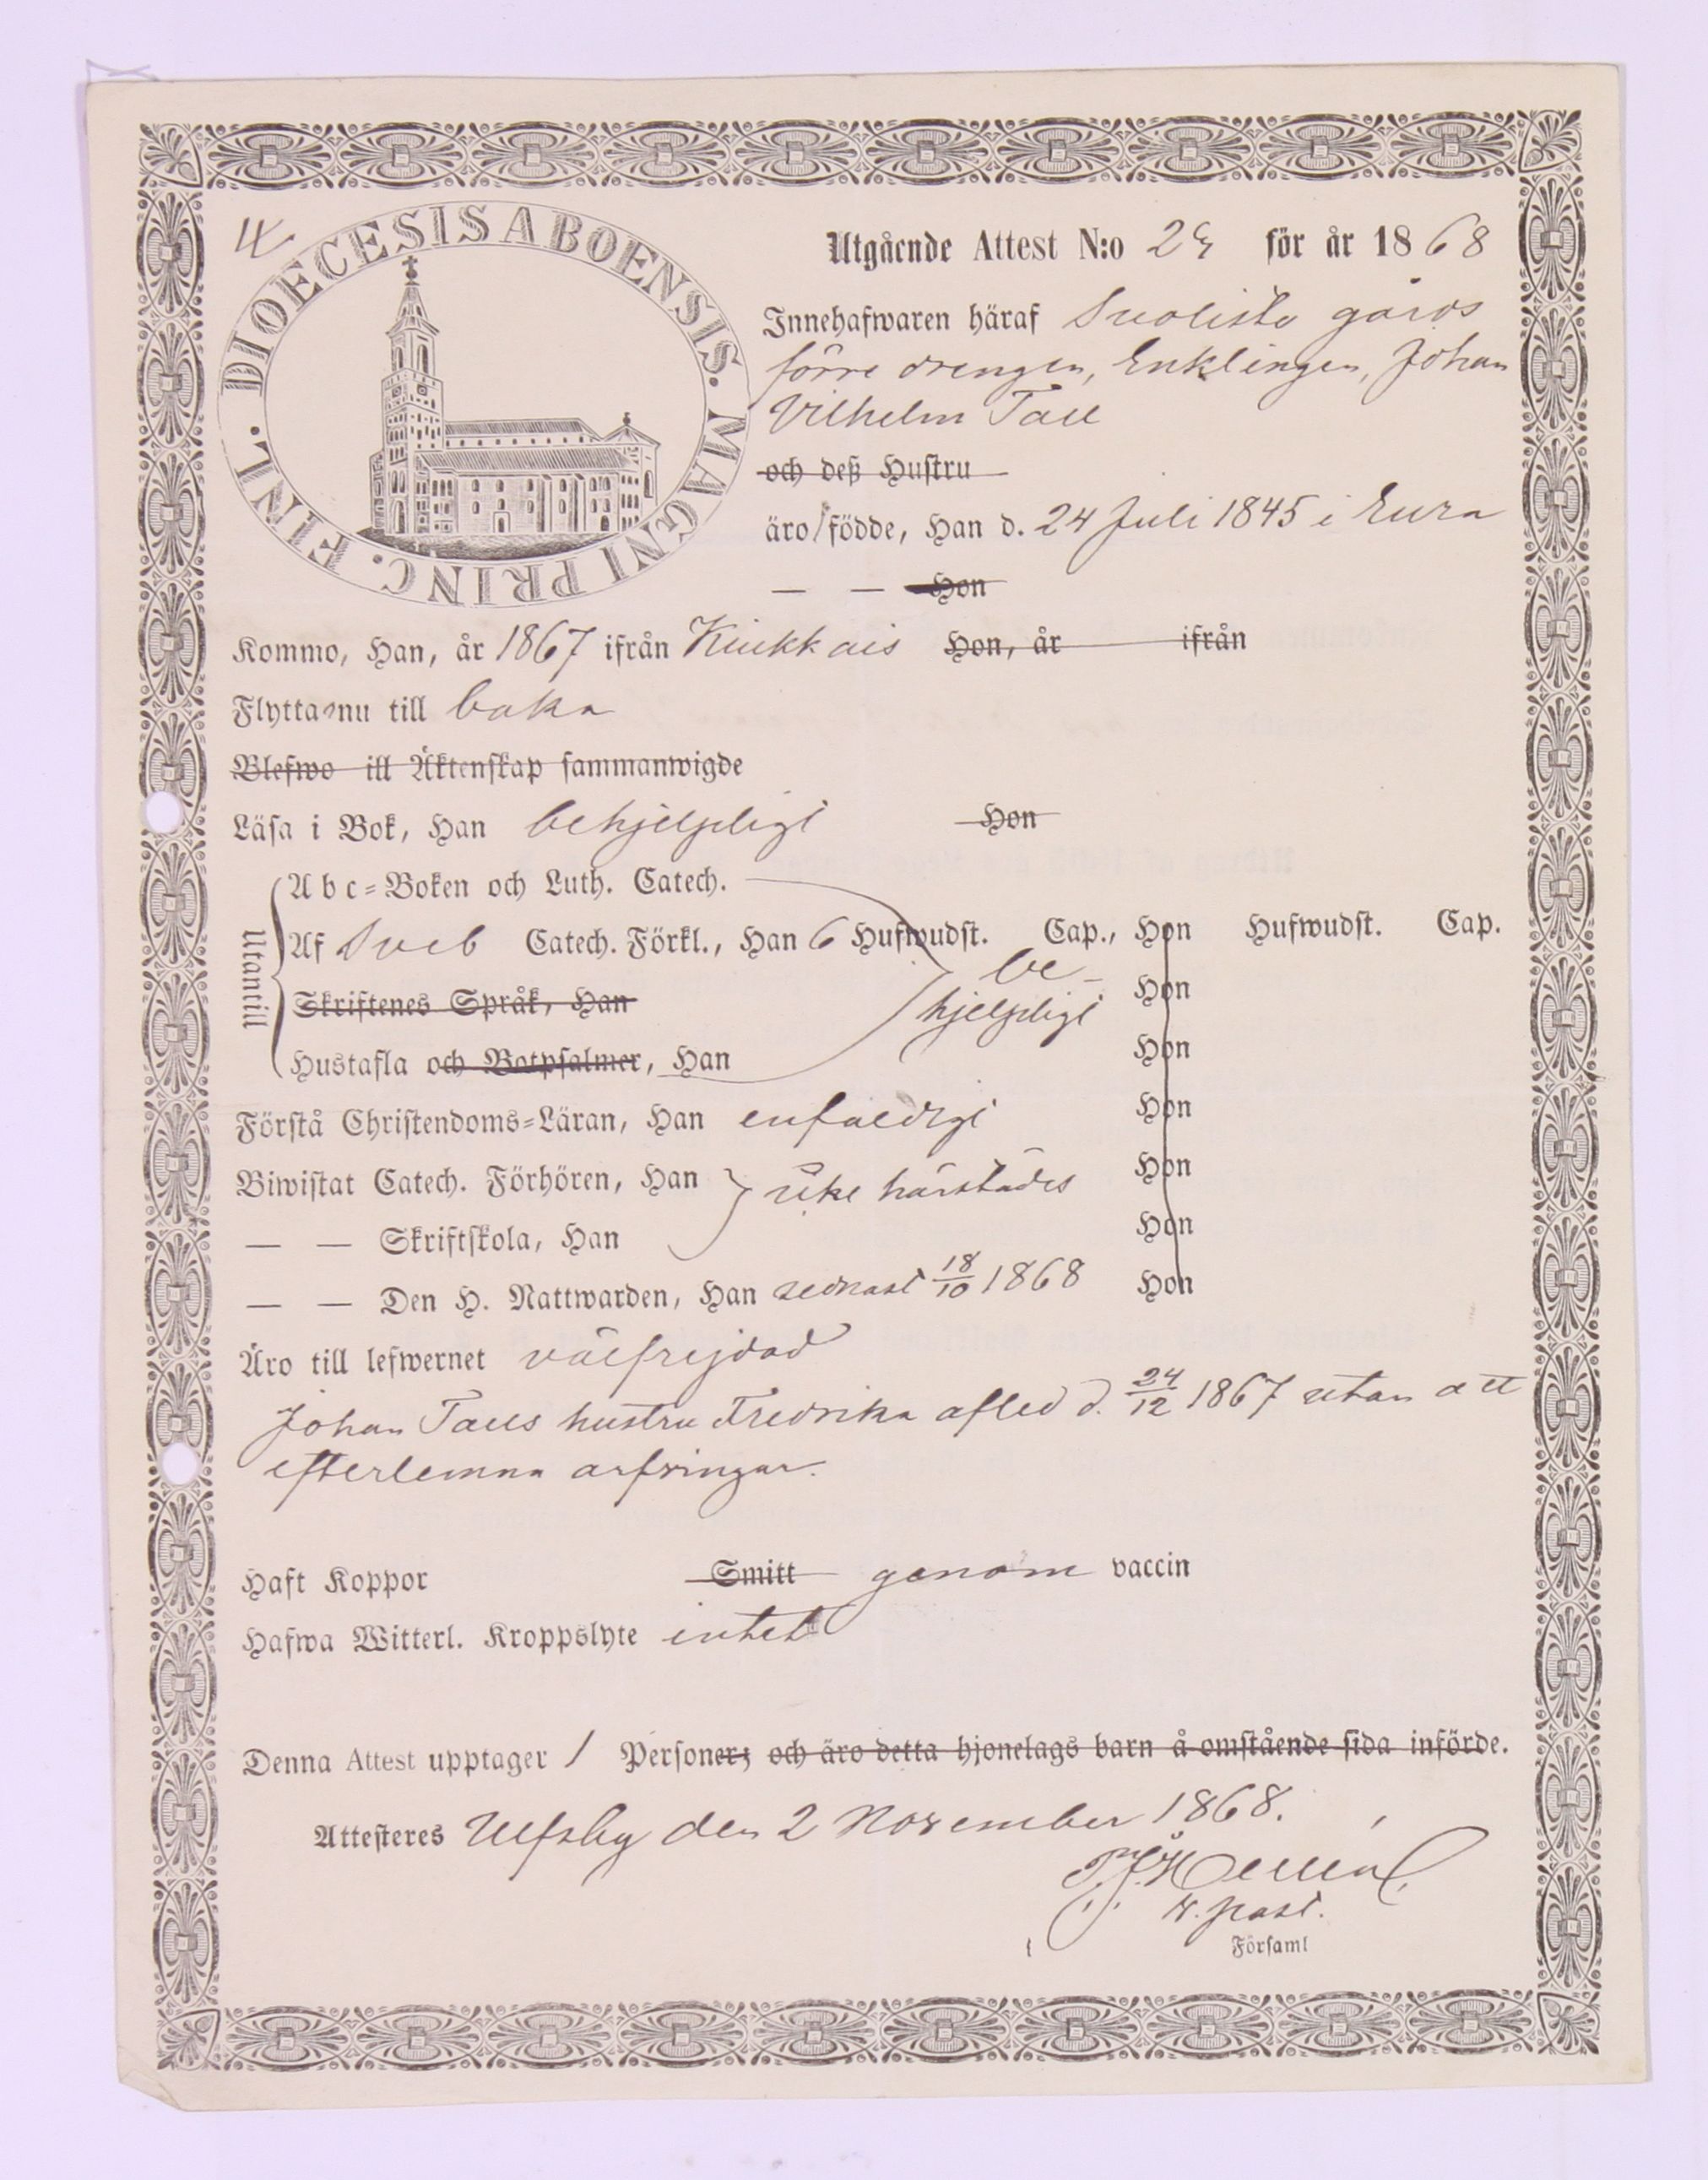 DIOECESIS ABOENSIS. MAGNI PRINC. FINL.
Utgående Attest N:o 29 för år 1868
Innehafwaren häraf Suolisto gårds
förre drengen, Enklingen, Johan
Vilhelm Tall
och deß Hustru
äro/födde, Han d. 24 Juli 1845 i Eura
— — Hon
Kommo, Han, år 1867 ifrån Kiukkais Hon, år ifrån
Flytta nu till baka
Blefwo ill Äktenskap sammanwigde
Läsa i Bok, Han behjelpligt Hon
Utantill
Abc=Boken och Luth. Catech.
Af Sveb Catech. Förkl., Han 6 Hufwudst. Cap., Hon Hufwudst. Cap.
Skriftenes Språk, Han be- Hon
hjelpligt
Hustafla och Botpsalmer, Han Hon
Förstå Christendoms=Läran, Han enfaldigt Hon
Biwistat Catech. Förhören, Han icke härstädes Hon
— — Skriftskola, Han Hon
— — Den H. Nattwarden, Han sednast 18/10 1868 Hon
Äro till lefwernet välfrejdad
Johan Talls hustru Fredrika afled d. 24/12 1867 utan att
efterlemna arfvingar.
Haft Koppor Smitt genom vaccin
Hafwa Witterl. Kroppslyte intet
Denna Attest upptager 1 Personer; och äro detta hjonelags barn å omstående sida införde.
Attesteres Ulfsby den 2 November 1868.
v. past.
Församl